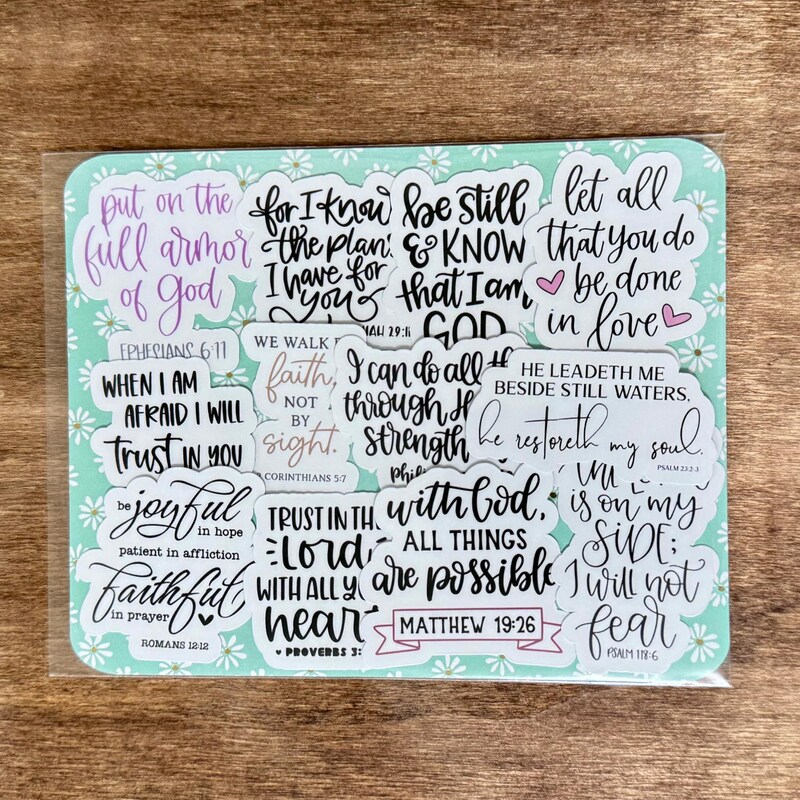 put on the
full armor
of God
EPHESIANS 6:11
for I know
the plans
I have for
you
29:11
be still
& KNOW
that I am
GOD
let all
that you do
be done
in love
WHEN I AM
AFRAID I WILL
trust IN YOU
WE WALK
faith,
NOT
BY
sight.
CORINTHIANS 5:7
I can do all
through
strength
HE LEADETH ME
BESIDE STILL WATERS,
he restoreth my soul.
PSALM 23:2-3
be joyful
in hope
patient in affliction
faithful
in prayer
ROMANS 12:12
TRUST IN THE
LORD
WITH ALL
heart
PROVERBS 3:
with God,
ALL THINGS
are possible
MATTHEW 19:26
is on my
SIDE;
I will not
fear
PSALM 118:6